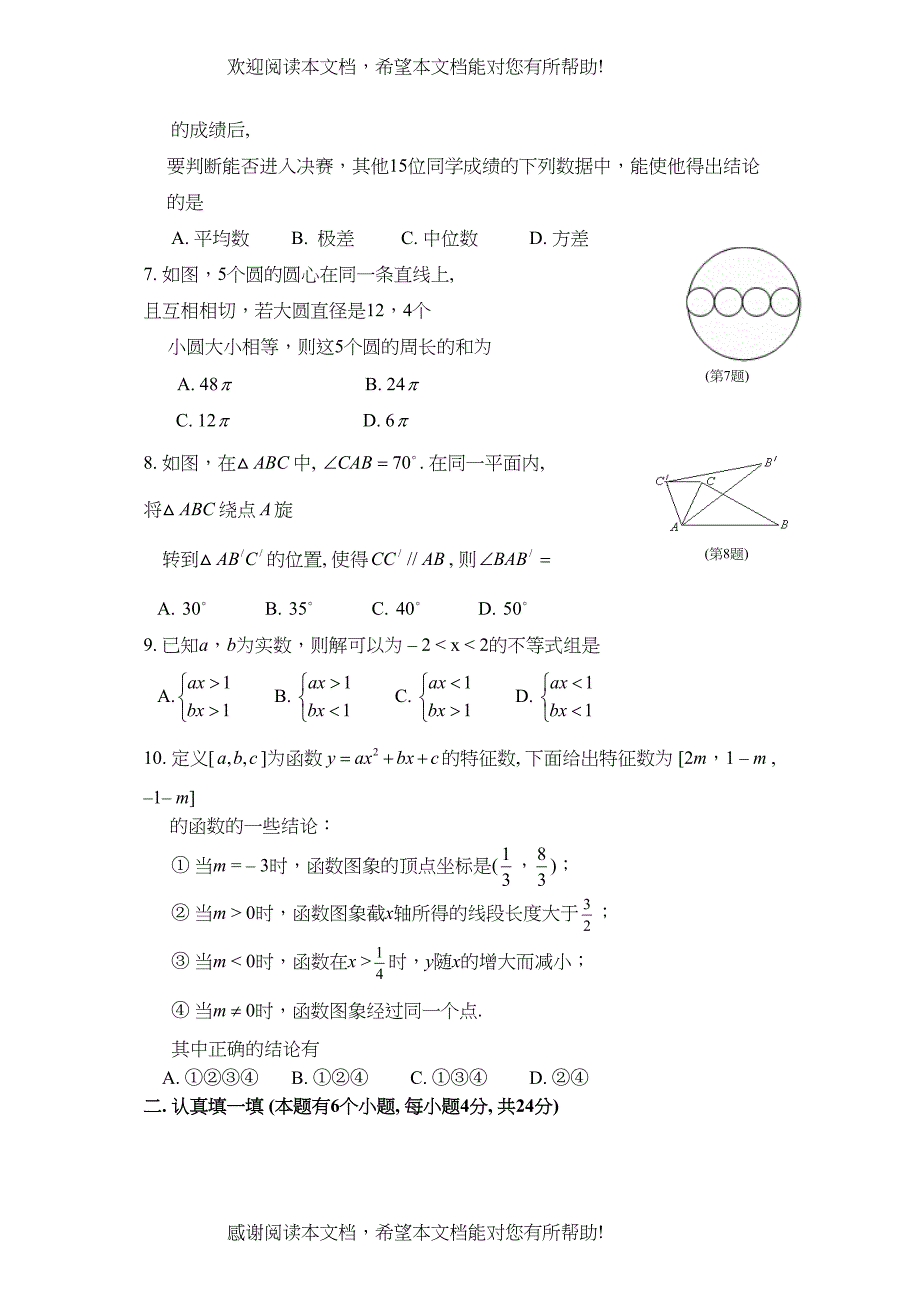 欢迎阅读本文档，希望本文档能对您有所帮助!
的成绩后,
要判断能否进入决赛，其他15位同学成绩的下列数据中，能使他得出结论
的是
A. 平均数 B. 极差 C. 中位数 D. 方差
7. 如图，5个圆的圆心在同一条直线上,
且互相相切，若大圆直径是12，4个
小圆大小相等，则这5个圆的周长的和为
A. 48π B. 24π
(第7题)
C. 12π D. 6π
8. 如图，在△ABC中, ∠CAB = 70°. 在同一平面内,
B′
C′ C
将△ABC绕点A旋
A B
转到△AB/C/的位置, 使得CC/ // AB, 则∠BAB/ =
(第8题)
A. 30° B. 35° C. 40° D. 50°
9. 已知a，b为实数，则解可以为 – 2 < x < 2的不等式组是
A. {ax > 1 B. {ax > 1 C. {ax < 1 D. {ax < 1
bx > 1 bx < 1 bx > 1 bx < 1
10. 定义[a,b,c]为函数y = ax² + bx + c的特征数, 下面给出特征数为 [2m，1 – m ,
–1– m]
的函数的一些结论：
① 当m = – 3时，函数图象的顶点坐标是(1/3，8/3)；
② 当m > 0时，函数图象截x轴所得的线段长度大于3/2；
③ 当m < 0时，函数在x >1/4时，y随x的增大而减小；
④ 当m ≠ 0时，函数图象经过同一个点.
其中正确的结论有
A. ①②③④ B. ①②④ C. ①③④ D. ②④
二. 认真填一填 (本题有6个小题, 每小题4分, 共24分)
感谢阅读本文档，希望本文档能对您有所帮助!